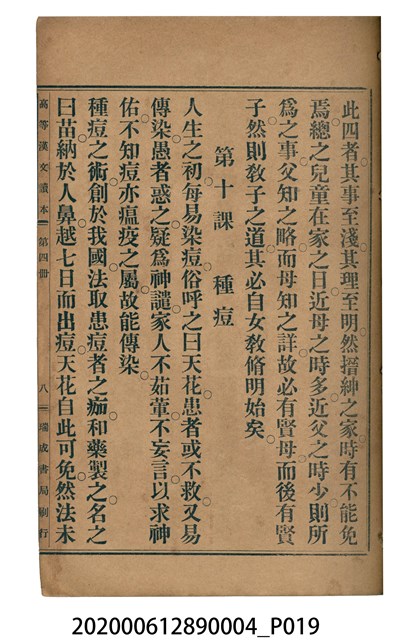 此四者其事至淺其理至明然搢紳之家時有不能免
焉總之兒童在家之日近母之時多近父之時少則所
爲之事父知之略而母知之詳故必有賢母而後有賢
子然則教子之道其必自女教脩明始矣
第十課　種痘
人生之初每易染痘俗呼之曰天花患者或不救又易
傳染愚者惑之疑爲神譴家人不茹葷不妄言以求神
佑不知痘亦瘟疫之屬故能傳染
種痘之術創於我國法取患痘者之痂和藥製之名之
曰苗納於人鼻越七日而出痘天花自此可免然法未
高等漢文讀本　第四冊　八　瑞成書局刷行
202000612890004_P019